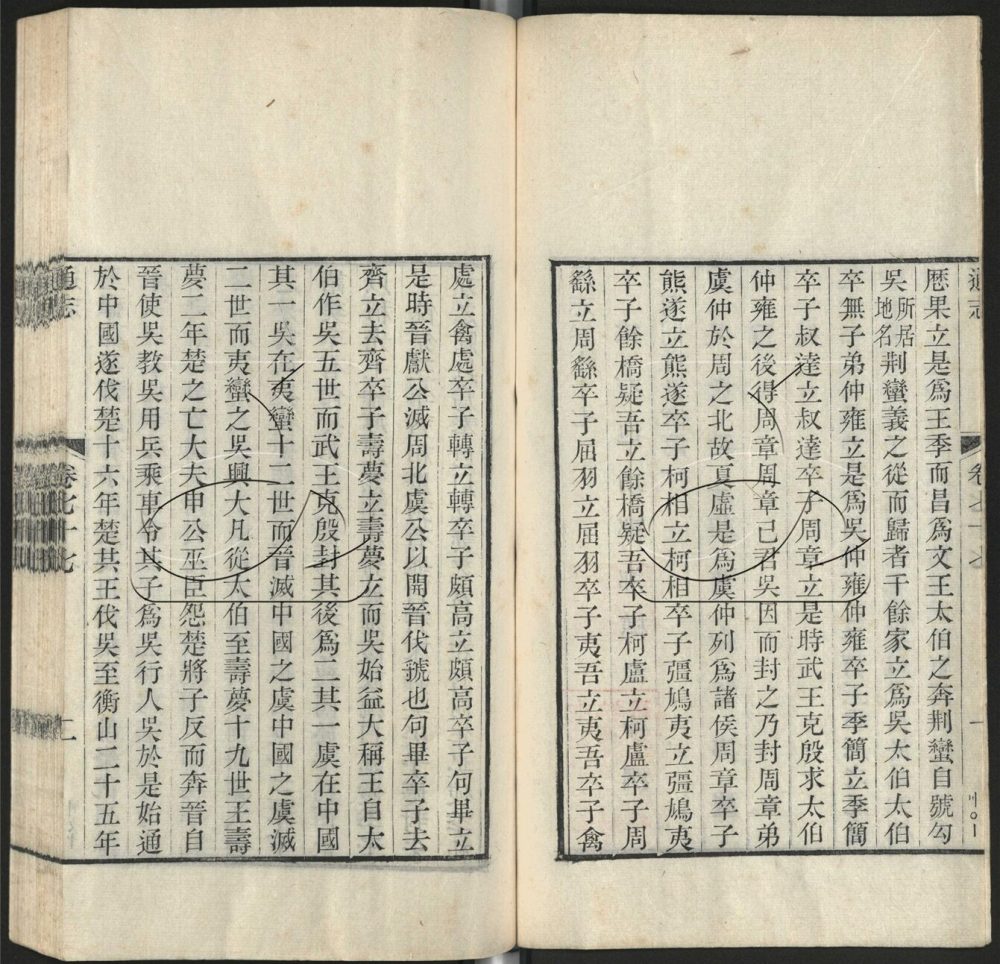 通志
卷七十七
一
川〇一
厯果立是爲王季而昌爲文王太伯之奔荆蠻自號勾
吳所居地名荆蠻義之從而歸者千餘家立爲吳太伯太伯
卒無子弟仲雍立是爲吳仲雍仲雍卒子季簡立季簡
卒子叔達立叔達卒子周章立是時武王克殷求太伯
仲雍之後得周章周章已君吳因而封之乃封周章弟
虞仲於周之北故夏虛是爲虞仲列爲諸侯周章卒子
熊遂立熊遂卒子柯相立柯相卒子彊鳩夷立彊鳩夷
卒子餘橋疑吾立餘橋疑吾卒子柯盧立柯盧卒子周
繇立周繇卒子屈羽立屈羽卒子夷吾立夷吾卒子禽
處立禽處卒子轉立轉卒子頗高立頗高卒子句畢立
是時晉獻公滅周北虞公以開晉伐虢也句畢卒子去
齊立去齊卒子壽夢立壽夢立而吳始益大稱王自太
伯作吳五世而武王克殷封其後爲二其一虞在中國
其一吳在夷蠻十二世而晉滅中國之虞中國之虞滅
二世而夷蠻之吳興大凡從太伯至壽夢十九世王壽
夢二年楚之亡大夫申公巫臣怨楚將子反而奔晉自
晉使吳教吳用兵乘車令其子爲吳行人吳於是始通
於中國遂伐楚十六年楚共王伐吳至衡山二十五年
通志
卷七十七
二